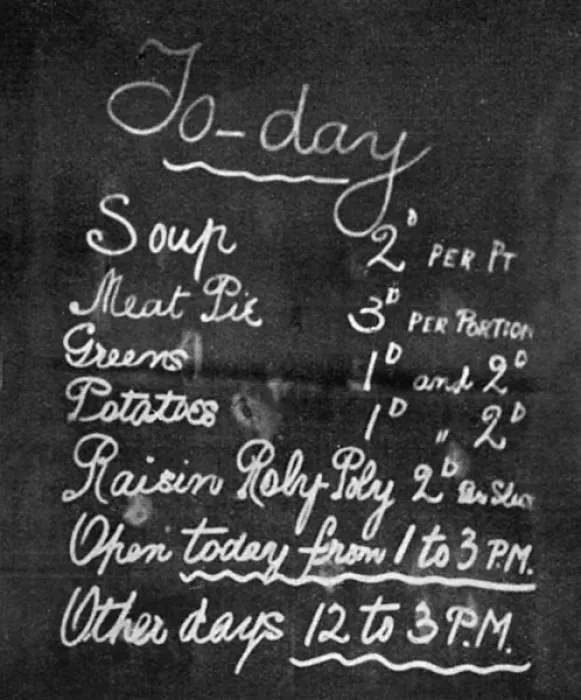 To-day
Soup 2D PER PT
Meat Pie 3D PER PORTION
Greens 1D and 2D
Potatoes 1D " 2D
Raisin Roly-Poly 2D Per Slice
Open today from 1 to 3 P.M.
Other days 12 to 3 P.M.